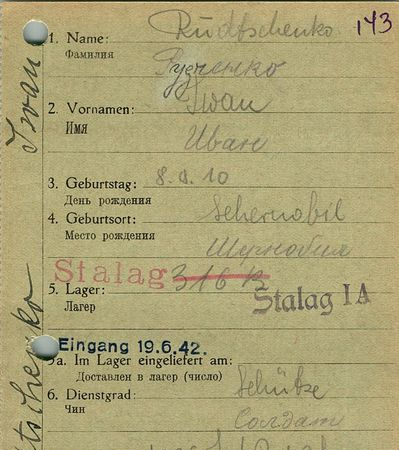 143
1. Name: Rudtschenko
Фамилия
Рудченко
2. Vornamen: Iwan
Имя
Иван
3. Geburtstag: 8.9.10
День рождения
4. Geburtsort: Schernobil
Место рождения
Шернобил
Stalag 316 B
5. Lager: Stalag IA
Лагер
Eingang 19.6.42.
5a. Im Lager eingeliefert am:
Доставлен в лагер (число)
6. Dienstgrad: Schütze
Чин
Солдат
Iwan
tschenko